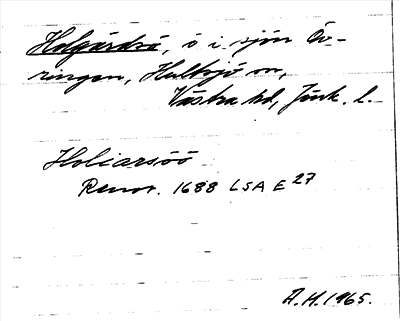 Holgärdsö, ö i sjön Öv-
ringen, Hultsjö sn,
Västra hd, Jönk. l.
Holiarsöö
Renov. 1688 LSA E 27
A.H. 1965.